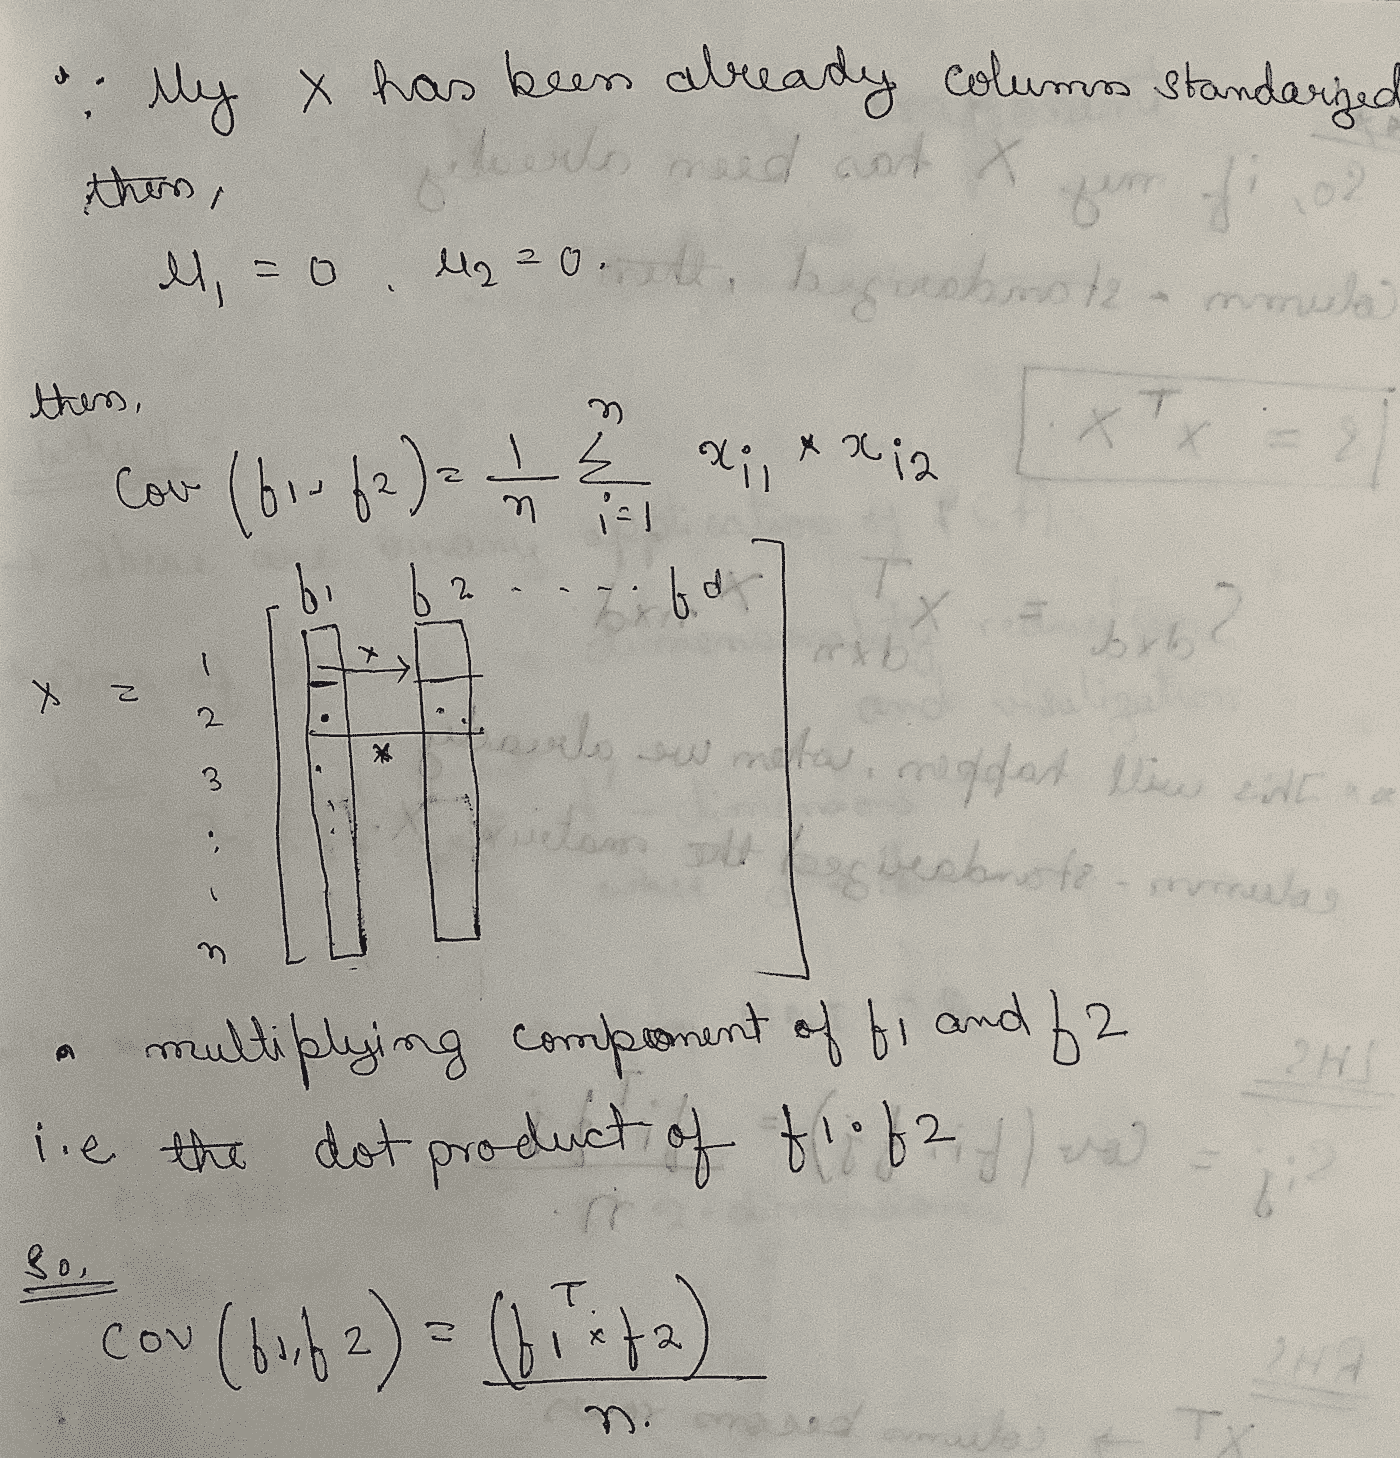 ∵ My X has been already column standarized
then,
μ₁ = 0, μ₂ = 0.
then,
Cov (f1, f2) = 1/n Σ_{i=1}^{n} x_{i1} * x_{i2}
f1 f2 ..... fd
X =
1
2
3
:
n
×
*
• multiplying component of f1 and f2
i.e the dot product of f1.f2
So,
Cov (f1, f2) = (f1^T × f2) / n.